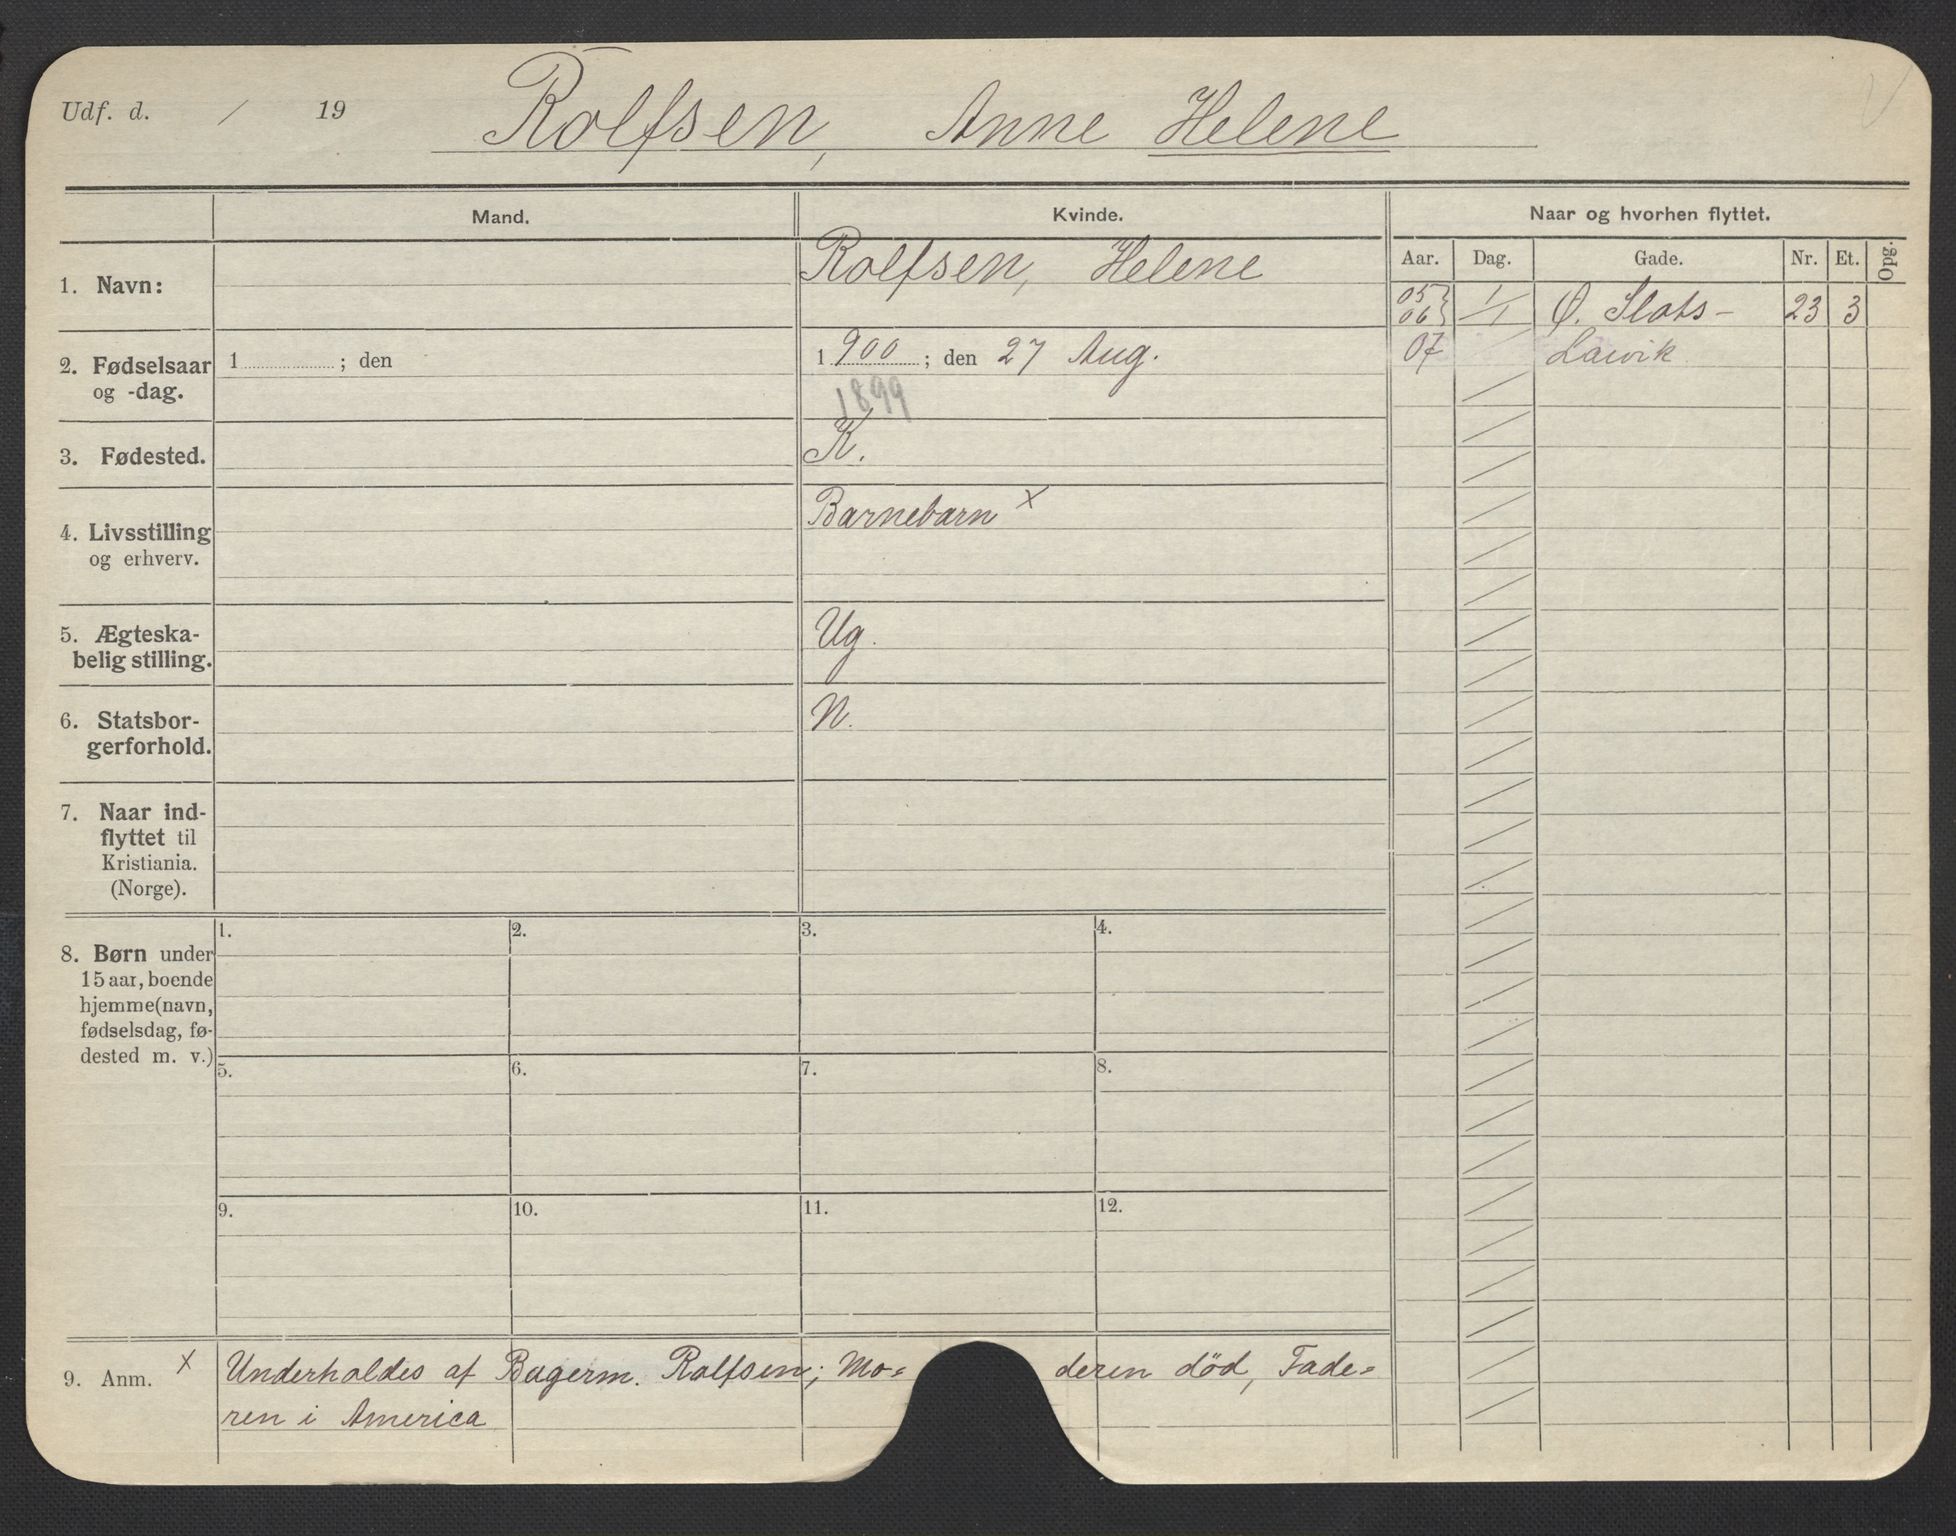 Udf. d. / 19 Rolfsen, Anne Helene
Mand. Kvinde. Naar og hvorhen flyttet.
Aar. Dag. Gade. Nr. Et. Opg.
1. Navn: Rolfsen, Helene
05 06 } 1/1 Ø. Slots- 23 3
07 Laivik
2. Fødselsaar 1 ; den 1900 ; den 27 Aug.
og -dag. 1899
3. Fødested. K.
4. Livsstilling Barnebarn x
og erhverv.
5. Ægteska-
belig stilling. Ug.
6. Statsbor- N.
gerforhold.
7. Naar ind-
flyttet til
Kristiania.
(Norge).
8. Børn under
15 aar, boende
hjemme (navn,
fødselsdag, fø-
dested m. v.)
1. 2. 3. 4.
5. 6. 7. 8.
9. 10. 11. 12.
9. Anm. x Underholdes af Bagerm. Rolfsen; Mo= deren död, Fade=
ren i America